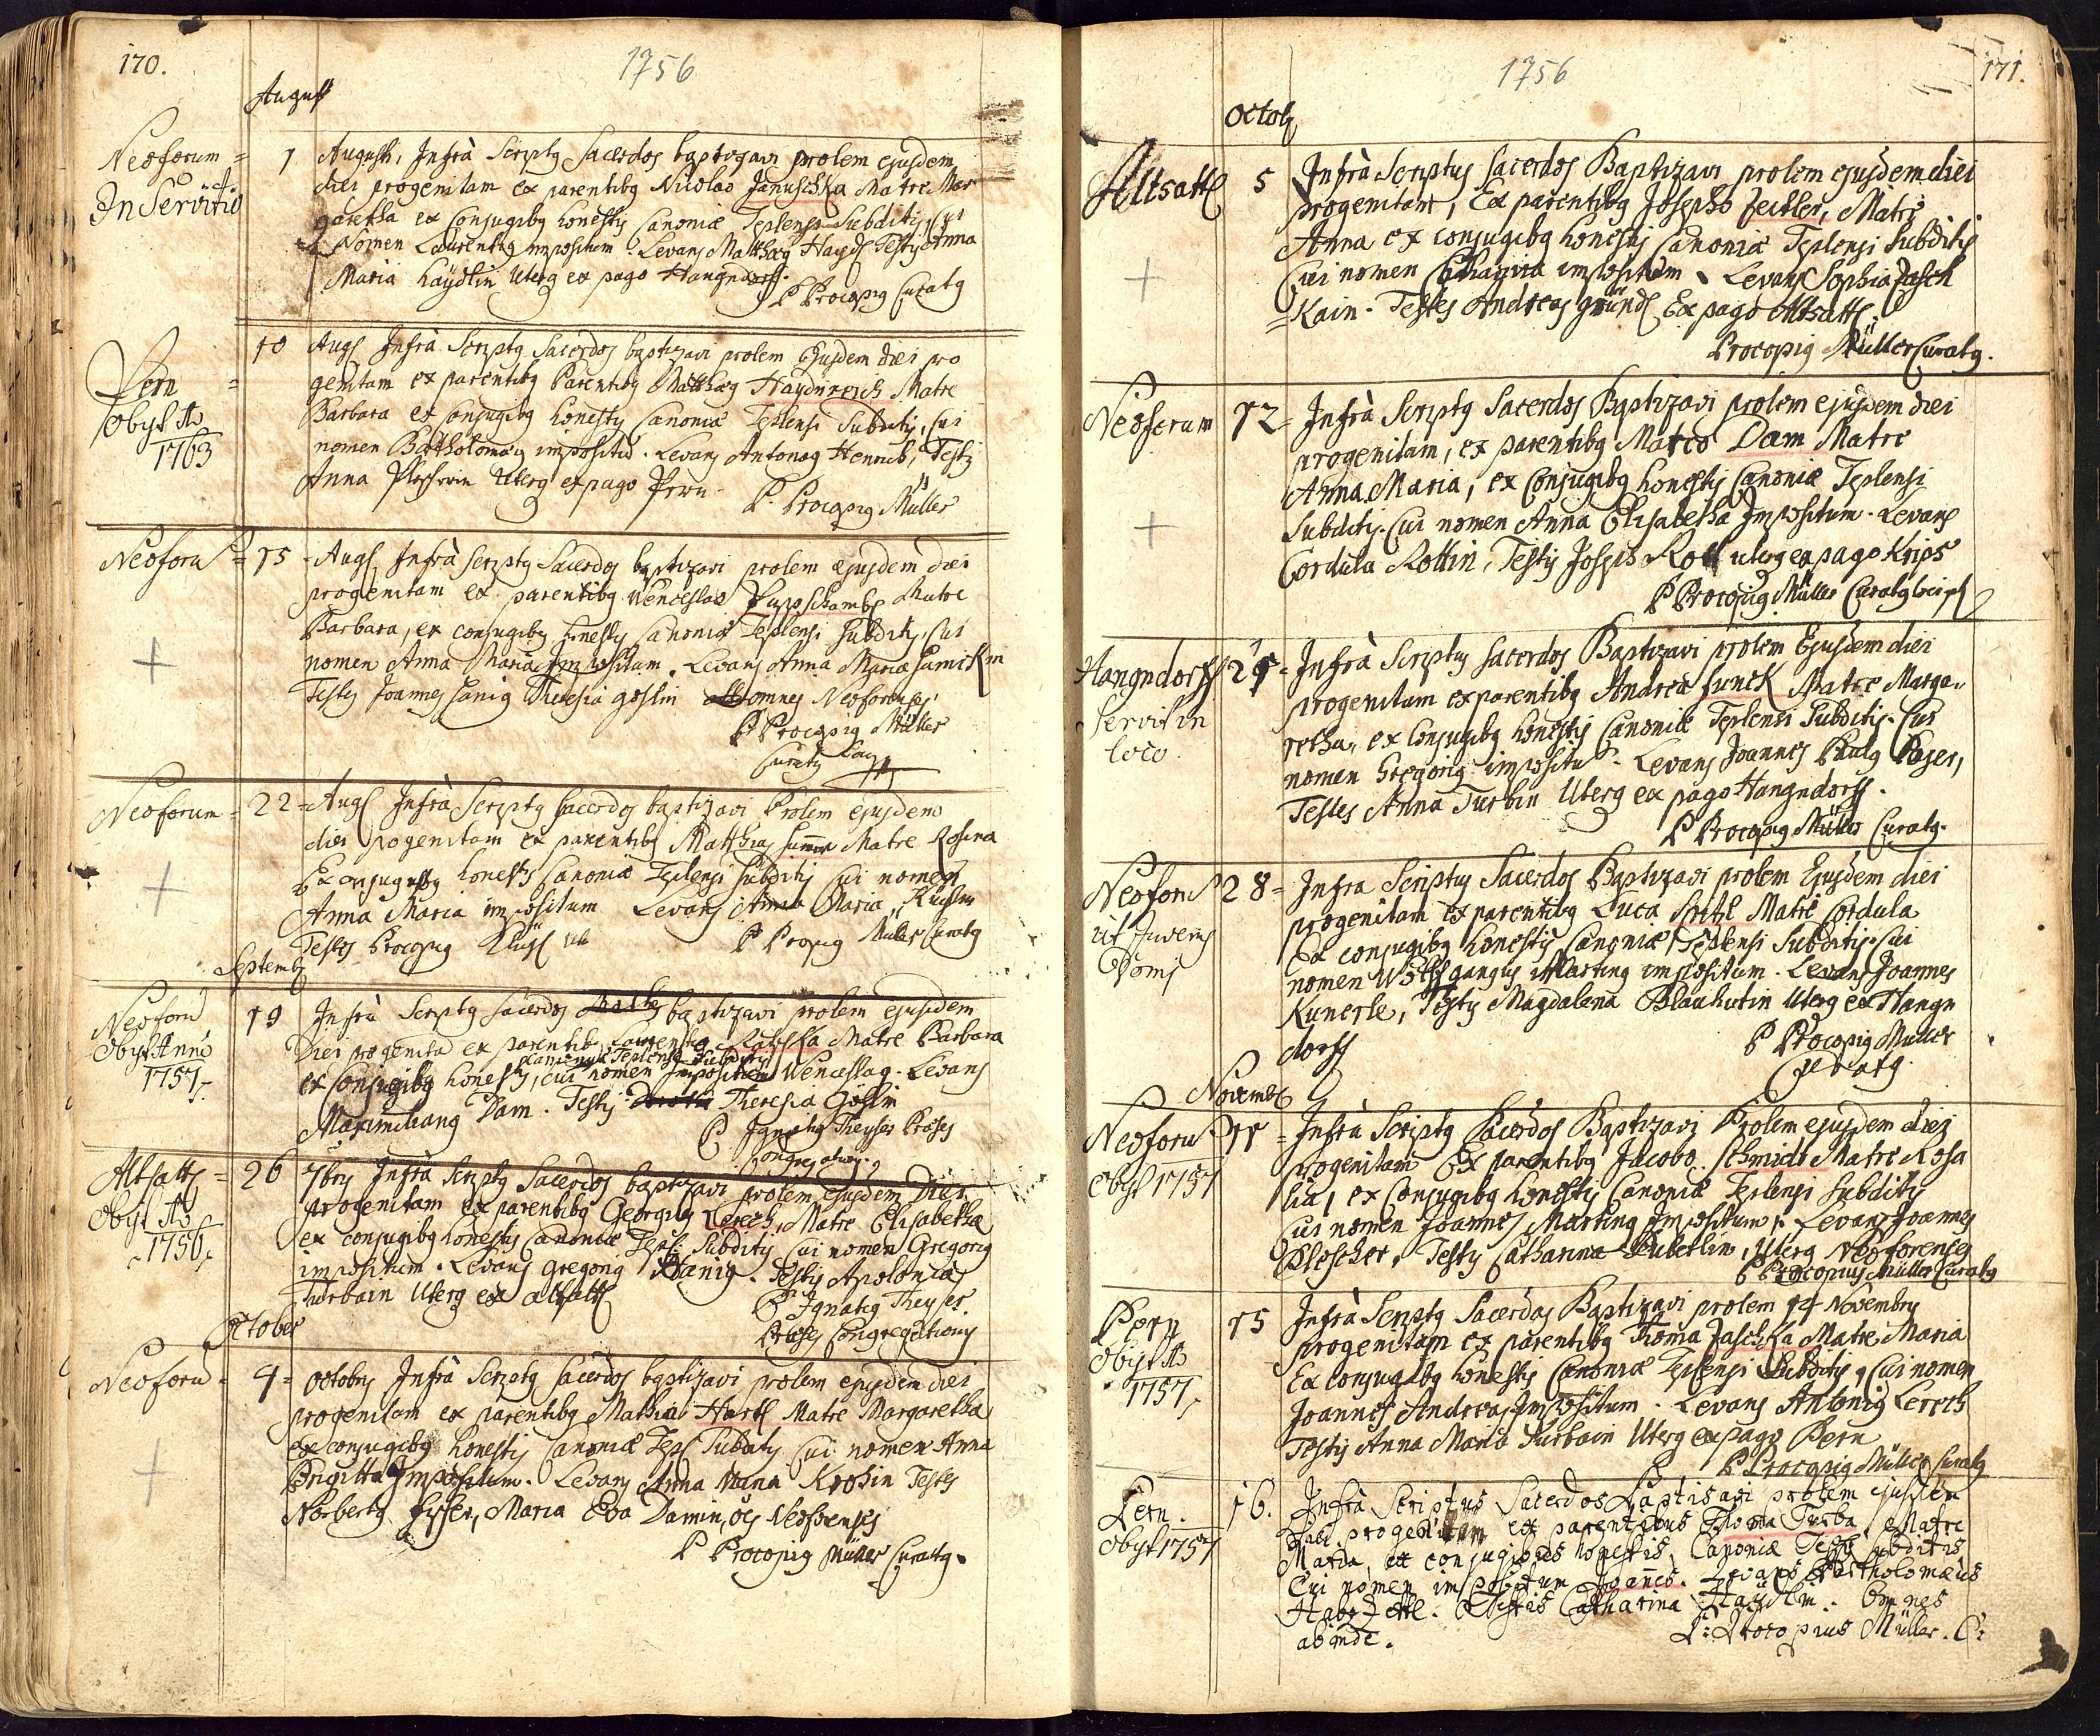 170.
1756
August
Neoforum =
In Servitio
1 Augusti, Infrà Scriptg Sacerdos baptizavi prolem ejusdem
diei progenitam ex parentibg Nicolao Januschka Matre Mar
garetha ex Conjugibg honestis Canoniæ Teplensi Subditis, Cui
Nomen Laurentig impositum. Levans Matthæg Haydl Testis Anna
Maria Haydlin Uterg ex pago Hangndorff.
P Procopig Curatg
Pern =
obyt Ao
1763
10 Aug Infrà Scriptg Sacerdos baptizavi prolem Ejusdem diei pro
genitam ex parentibg Parentibg Matthæg Haydnreich Matre
Barbara ex Conjugibg honestis Canoniæ Teplensi Subditis, Cui
nomen Bartholomæg impositū. Levans Antonog Henrich, Testis
Anna Uterg ex pago Pern.
P. Procopig Müller
Neoforū =
15 - Aug Infrà Scriptg Sacerdos baptizavi prolem ejusdem diei
progenitam ex parentibg Wenceslao Matre
Barbara, ex conjugibg honestis Canoniæ Teplensi Subditis, Cui
nomen Anna Maria Impositum. Levans Anna Maria
Testis Joannes Hanig Theresia Goslin omnes Neoforenses
P Procopig Müller
Curatg
Neoforum =
22 = Aug Infrà Scriptg Sacerdos baptizavi Prolem ejusdem
diei pogenitam ex parentibg Matthia Matre Rosina
Ex conjugibg honestis Canoniæ Teplensi Subditis Cui nomen
Anna Maria impositum Levans Anna Maria
Testes Procopig
P Propig Müller Curatg
Septemb
Neoforū
Obyt Anno
1757.
19 Infrà Scriptg Sacerdos baptizavi prolem ejusdem
Diei progenita ex parentibg Laurentig Matre Barbara
Canoniæ Teplensi Subditis
ex Conjugibg honestis, cui nomen Impositum Wenceslag. Levans
Maximiliang Dam. Testis Theresia Goslin
P Ignatig Theyser Præses
Congregationis.
Altsattl =
Obyt Ao
1756.
26 7bris Infrà Scriptg Sacerdos baptizavi prolem ejusdem Diei
progenitam ex parentibg Georgig Lerech, Matre Elisabetha
ex conjugibg honestis Canoniæ Tepl: Subditis Cui nomen Gregorig
impositum. Levans Gregorig Hanig. Testis Apolonia
Turbain Uterg ex altsattl
P Ignatig Theyser.
Præses Congregationis
October
Neoforū =
4 = octobris Infrà Scriptg Sacerdos baptizavi prolem ejusdem diei
progenitam ex parentibg Mathia Hartl Matre Margaretha
ex conjugibg honestis Canoniæ Tepl Subditis Cui nomen Anna
Brigitta Impositum. Levans Anna Maria Krohin Testes
Norbertg Eyser, Maria Eva Damin, oēs Neoforenses
P Procopig Müller Curatg.
1756
171.
Octob
Altsattl
5 Infrà Scriptus Sacerdos Baptizavi prolem ejusdem diei
progenitam, Ex parentibg Josepho Zeitler, Matre
Anna ex conjugibg honestis Canoniæ Teplensi Subditis
Cui nomen Catharina impositum. Levans Sophia Jasch
= Kain. Testes Andreas Gründl Ex pago Altsattl.
Procopig Müller Curatg.
Neoforum
12 = Infrà Scriptg Sacerdos Baptizavi prolem ejusdem diei
progenitam, ex parentibg Marco Dam Matre
Anna Maria, ex Conjugibg honestis Canoniæ Teplensi
Subditis. Cui nomen Anna Elisabetha Impositum. Levans
Cordula Rottin, Testis Joseph Rott uterg ex pago Krips
P Procopig Müller Curatg loci
Hangndorff
Servit in
loco
25 = Infrà Scriptus Sacerdos Baptizavi prolem Ejusdem diei
progenitam ex parentibg Andrea Junck Matre Marga„
retha, ex Conjugibg honestis Canoniæ Teplensi Subditis. Cui
nomen Gregorig impositū. Levans Joannes Paulg Poser,
Testes Anna Turbin Uterg ex pago Hangndorff.
P Procopig Müller Curatg.
Neoforū
ut Juvenis
Domi
28 = Infra Scriptus Sacerdos Baptizavi prolem Ejusdem diei
progenitam ex parentibg Luca Matre Cordula
Ex conjugibg honestis Canoniæ Teplensi Subditis. Cui
nomen Wolffgangus Marting impositum. Levans Joannes
Kunerle, Testis Magdalena Blauhutin Uterg ex Hangn
dorff
P Procopig Müller
Curatg
Novemb
Neoforū
Obyt 1757
11 = Infrà Scriptg Sacerdos Baptizavi Prolem ejusdem diei
progenitam Ex parentibg Jacobo Schmidt Matre Rosa
lia, ex Conjugibg honestis Canoniæ Teplensi Subditis
Cui nomen Joannes Marting Impositum. Levans Joannes
Ploscher. Testis Catharina Puberlin, Uterg Neoforenses
P Procopius Müller Curatg
Pern
Obyt Ao
1757.
15 Infrà Scriptg Sacerdos Baptizavi prolem 14 Novembris
progenitam ex parentibg Thoma Jaschka Matre Maria
Ex Conjugibg honestis Canoniæ Teplensi Subditis, Cui nomen
Joannes Andreas Impositum. Levans Antonig Lerech
Testis Anna Maria Turbain Uterg ex pago Pern
P Procopig Müller Curatg
Pern.
obyt 1757
16. Infrà Scriptus Sacerdos Baptisavi prolem ejusdem
diei progenitam ex parentibus Thoma Turba, Matre
Maria, ex conjugibus honestis, Canoniæ Tepl: subditis
Cui nomen impositum Joannes. Levans Bartholomæus
Haberzettl. Testis Catharina Haydlin. Omnes
abinde.
P: Procopius Müller. C: